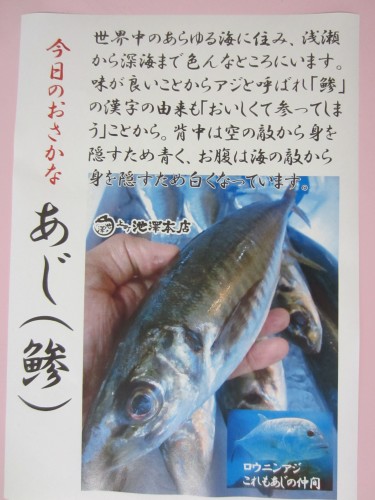 今日のおさかな
あじ(鯵)
世界中のあらゆる海に住み、浅瀬
から深海まで色んなところにいます。
味が良いことからアジと呼ばれ「鯵」
の漢字の由来も「おいしくて参ってしま
う」ことから。背中は空の敵から身を
隠すため青く、お腹は海の敵から
身を隠すため白くなっています。
池澤本店
ロウニンアジ
これもあじの仲間